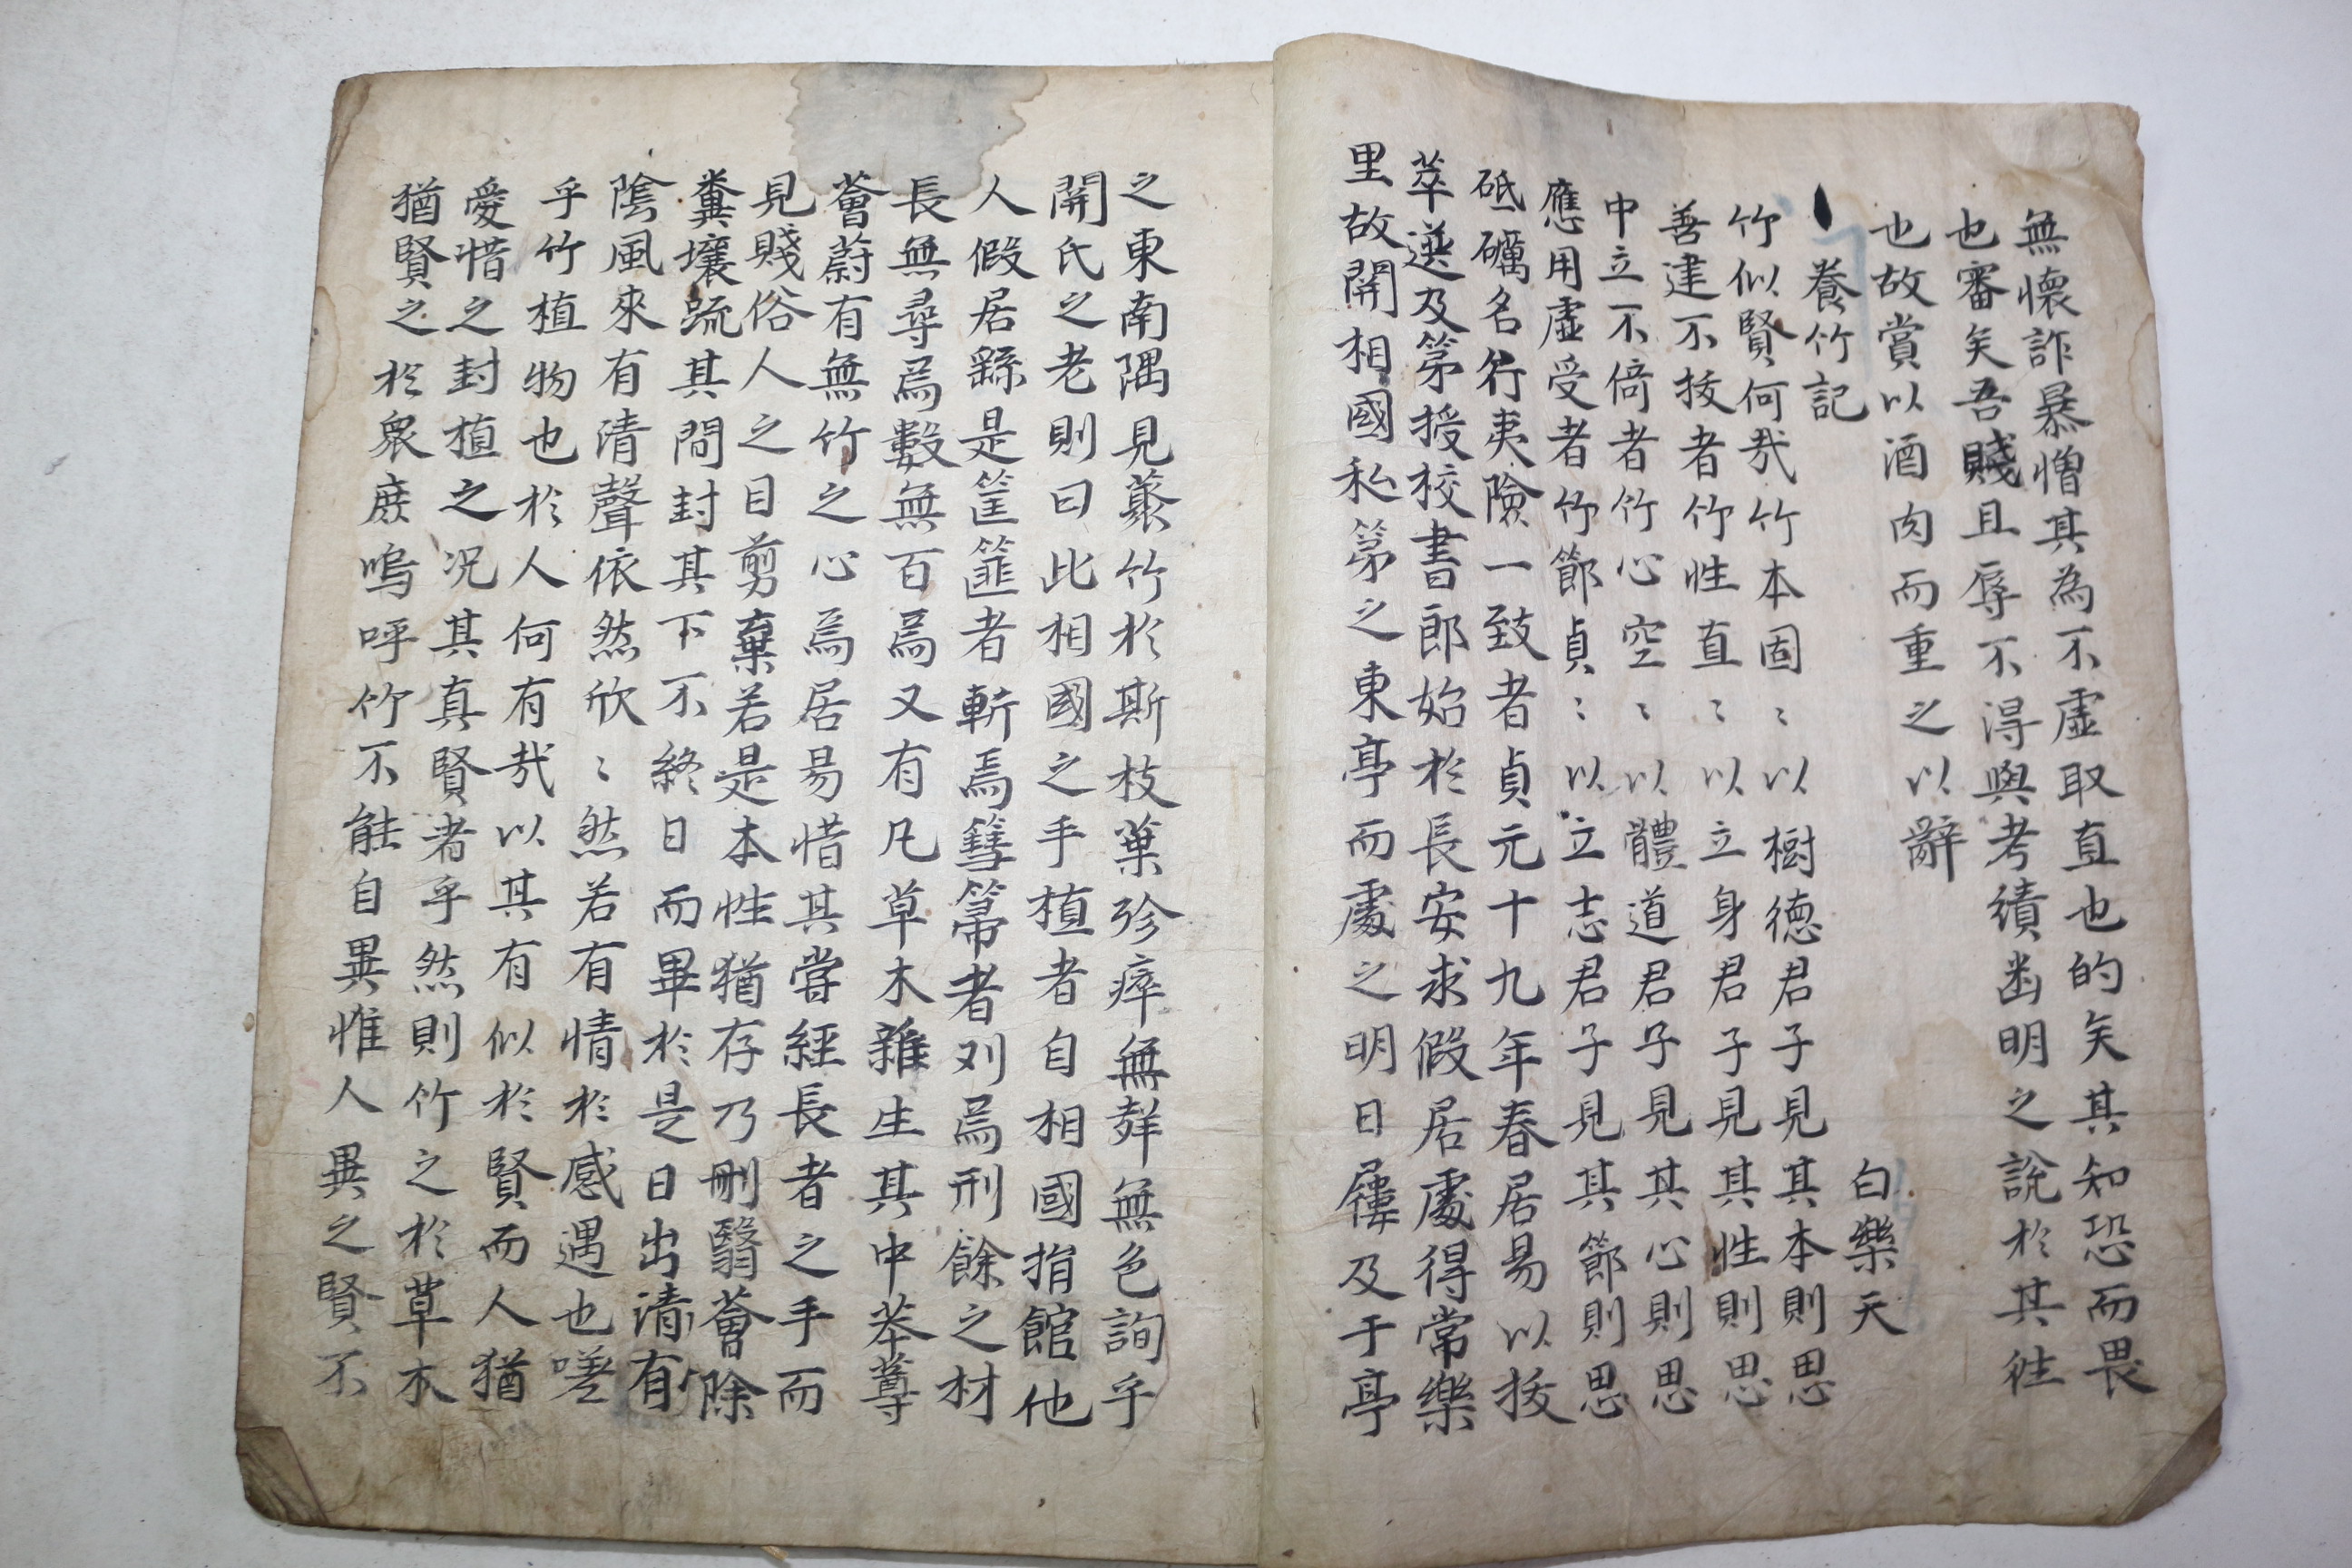 無懷詐暴憎其為不虛取直也的矣其知恐而畏
也審矣吾賤且辱不淂與考績幽明之說於其徃
也故賞以酒肉而重之以辭
養竹記 白樂天
竹似賢何㦲竹本固〻以樹德君子見其本則思
善建不拔者竹性直〻以立身君子見其性則思
中立不倚者竹心空〻以體道君子見其心則思
應用虛受者竹節貞〻以立志君子見其節則思
砥礪名行夷險一致者貞元十九年春居易以拔
萃選及第授校書郎始於長安求假居處得常樂
里故開相國私第之東亭而處之明日屨及于亭
之東南隅見藂竹於斯枝葉殄瘁無聲無色詢乎
開氏之老則曰比相國之手植者自相國捐館他
人假居繇是筐篚者斬焉篲箒者刈焉刑餘之材
長無尋焉數無百焉又有凡草木雜生其中苯䔿
薈蔚有無竹之心焉居昜惜其嘗經長者之手而
見賤俗人之目剪棄若是本性猶存乃刪翳薈除
糞壤疏其間封其下不終日而畢於是日出清有
陰風來有清聲依然欣〻然若有情於感遇也嗟
乎竹植物也於人何有㦲以其有似於賢而人猶
愛惜之封植之况其真賢者乎然則竹之於草木
猶賢之於衆庶嗚呼竹不能自異惟人異之賢不